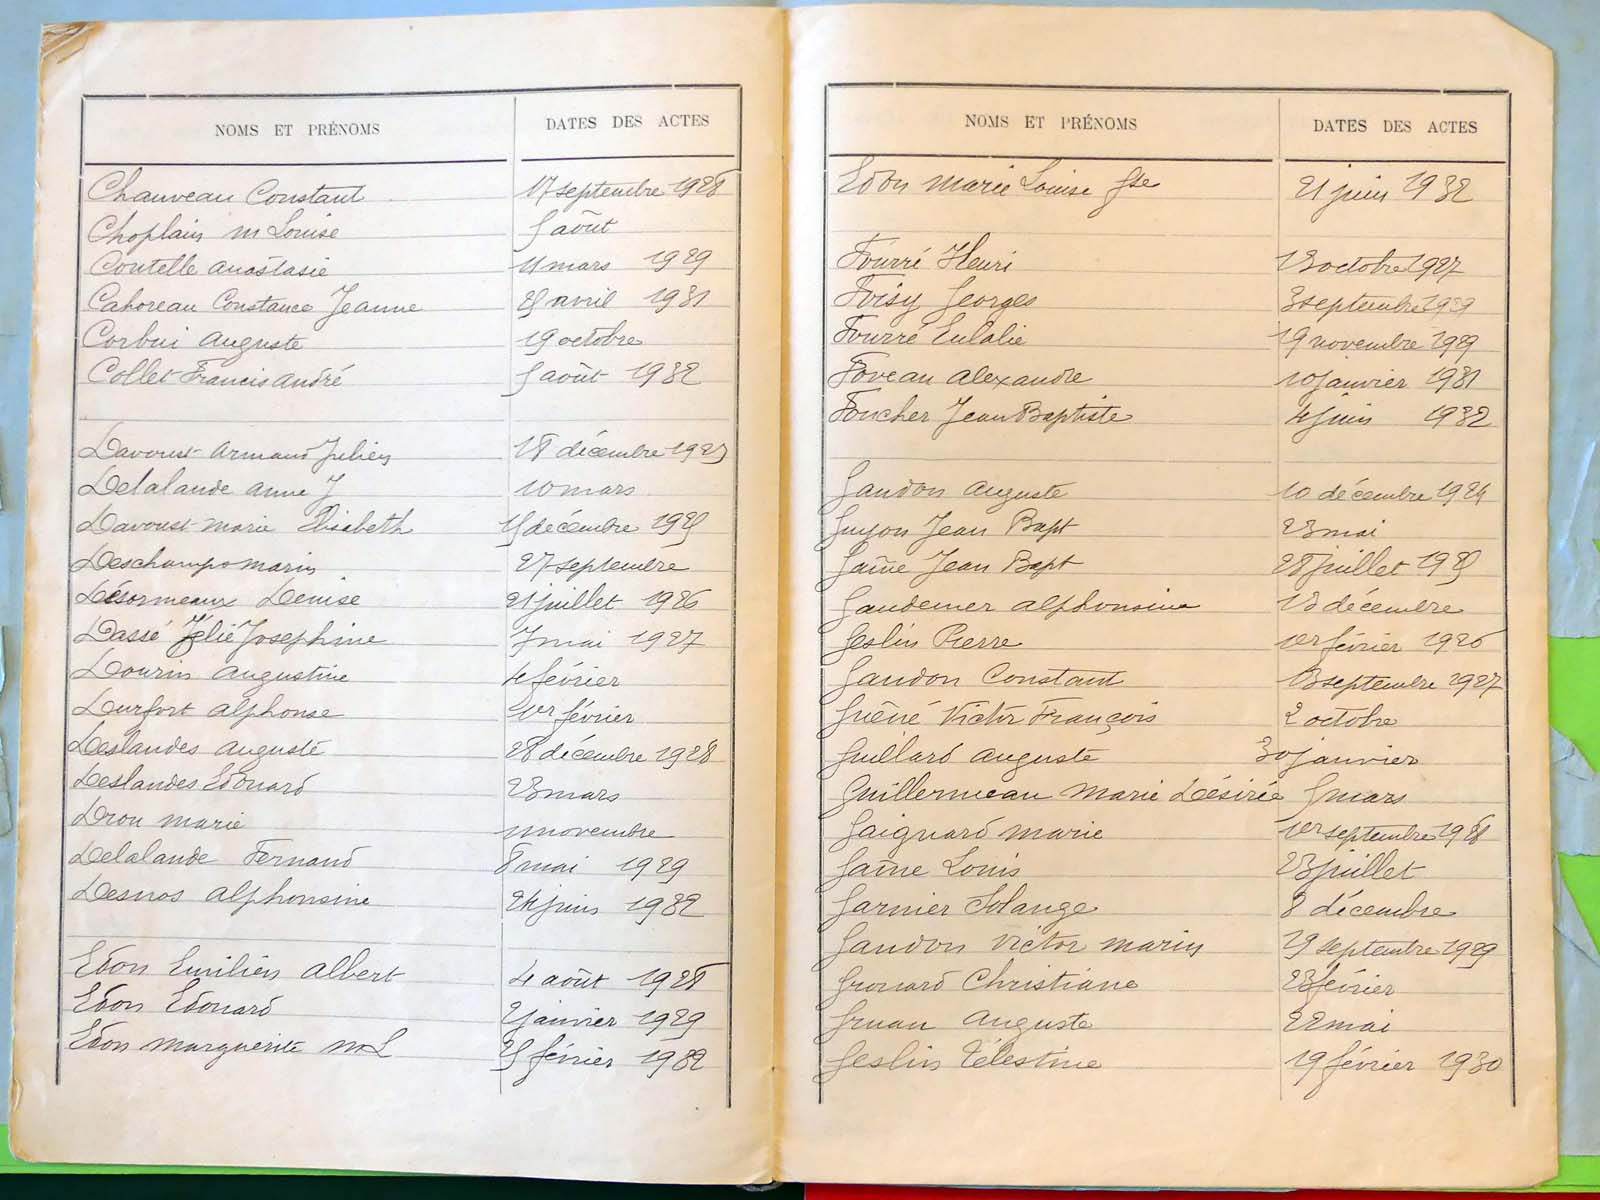 NOMS ET PRÉNOMS DATES DES ACTES
Chauveau Constant 17 septembre 1928
Choplain M Louise 5 août
Coutelle Anastasie 11 mars 1929
Cahoreau Constance Jeanne 25 avril 1931
Corbin Auguste 19 octobre
Collet Francis André 5 août 1932
Davoust Armand Julien 18 décembre 1923
Delalande Anne J 10 mars
Davoust Marie Elisabeth 15 décembre 1925
Deschamps Marin 27 septembre
Désormeaux Denise 21 juillet 1926
Dassé Joséphine 7 mai 1927
Dourin Augustine 4 février
Durfort Alphonse 1er février
Deslandes Auguste 28 décembre 1928
Deslandes Edouard 23 mars
Drou Marie 11 novembre
Delalande Fernand 8 mai 1929
Desnos Alphonsine 24 juin 1932
Edon Emilien Albert 4 août 1928
Edon Edouard 2 janvier 1929
Edon Marguerite M L 25 février 1932
NOMS ET PRÉNOMS DATES DES ACTES
Edon Marie Louise Gse 21 juin 1932
Fourré Henri 13 octobre 1927
Foisy Georges 3 septembre 1929
Fourré Eulalie 19 novembre 1929
Foveau Alexandre 10 janvier 1931
Foucher Jean Baptiste 4 juin 1932
Gandon Auguste 10 décembre 1924
Guyon Jean Bapt 23 mai
Gaîne Jean Bapt 28 juillet 1925
Gaudemer Alphonsine 13 décembre
Geslin Pierre 1er février 1926
Gandon Constant 13 septembre 1927
Guéné Victor François 2 octobre
Guillard Auguste 30 janvier
Guillermeau Marie Désirée 5 mars
Gaignard Marie 1er septembre 1928
Gaîne Louis 23 juillet
Garnier Solange 8 décembre
Gandon Victor Marin 19 septembre 1929
Gronard Christiane 23 février
Gruau Auguste 22 mai
Geslin Célestine 19 février 1930